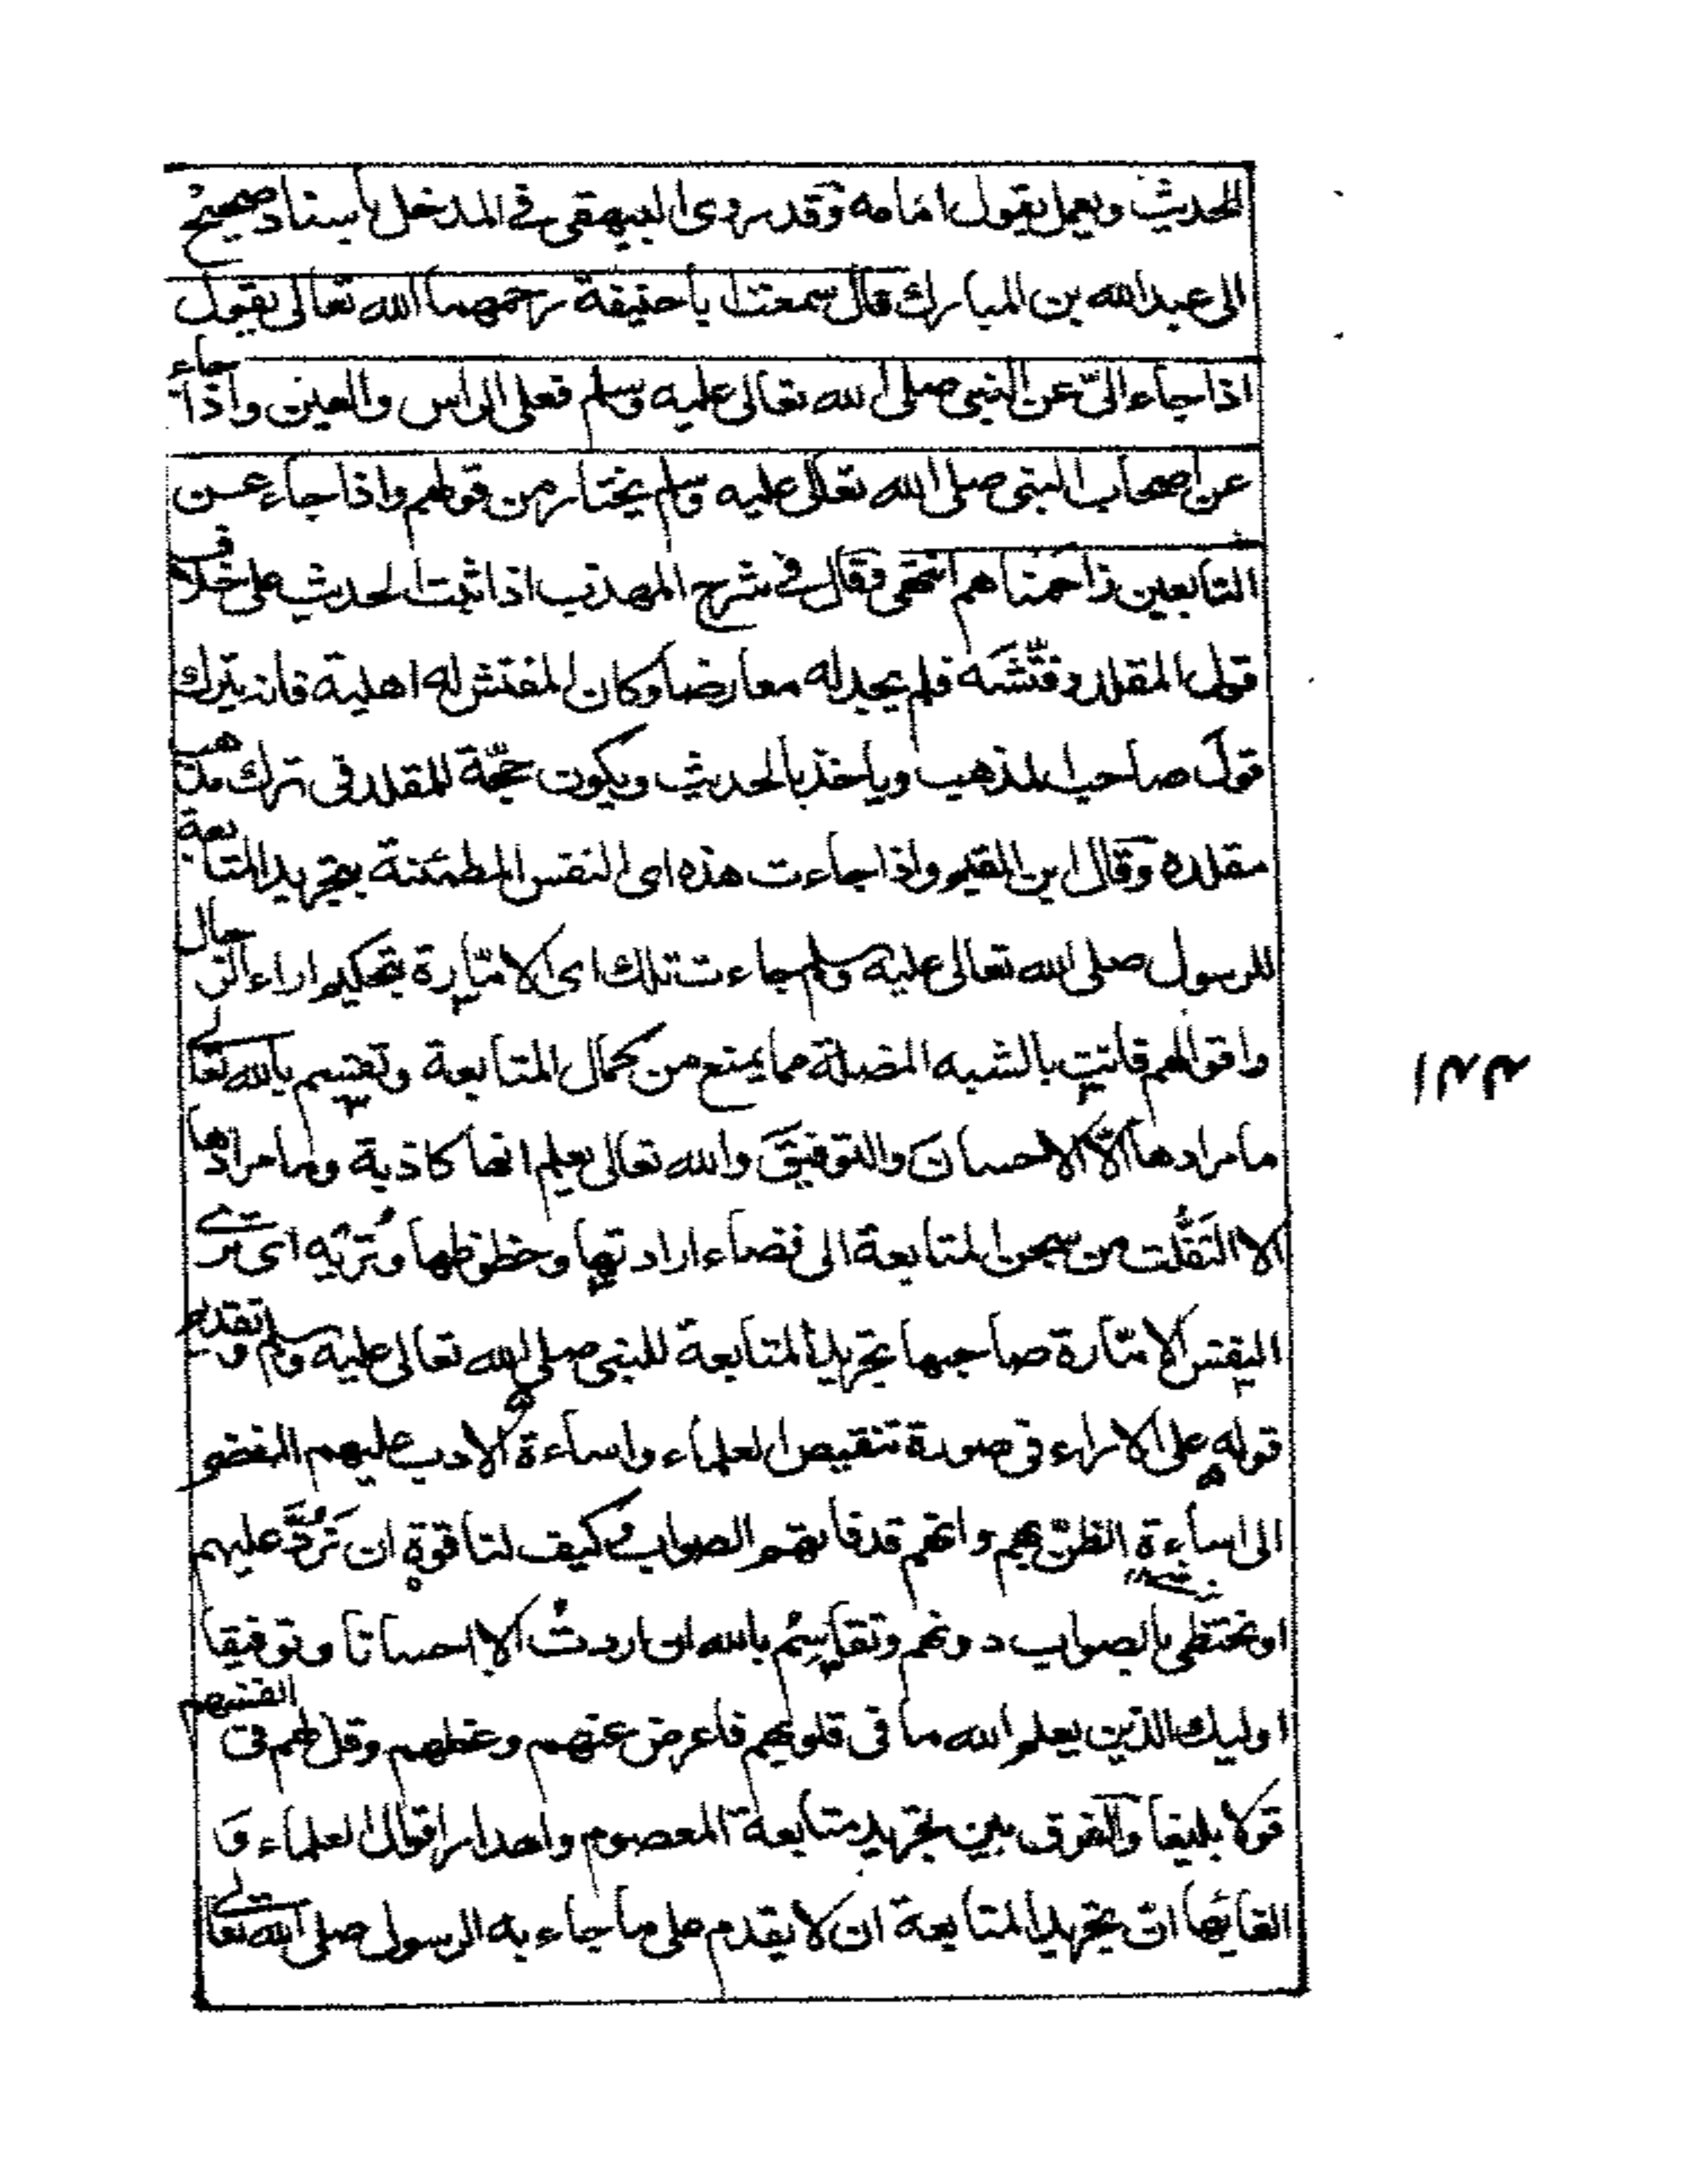 الحديث ويعمل بقول امامه وقد روى البيهقى في المدخل باسناد صحيح
الى عبدالله بن المبارك قال سمعت ابا حنيفة رحمهما الله تعالى يقول
اذا جاء الىّ عن النبي صلى الله تعالى عليه وسلم فعلى الراس والعين واذا جاء
عن اصحاب النبي صلى الله تعالى عليه وسلم نختار من قولهم واذا جاء عن
التابعين زاحمناهم انتهى وقال في شرح المهذب اذا ثبت الحديث على خلاف
قول المقلد وفتّشَه فلم يجد له معارضا وكان المفتش له اهلية فانه يترك
قولَ صاحب المذهب وياخذ بالحديث ويكون حجّة للمقلد في ترك مذهب
مقلده وقال ابن القيم واذا جاءت هذه اى النفس المطمئنة بتجريد المتابعة
للرسول صلى الله تعالى عليه وسلم جاءت تلك اى الامّارة بتحكيم اراء الرجال
واقوالهم فاتت بالشبه المضلة مما يمنع من كمال المتابعة وتقسم بالله تعالى
ما مرادها الّا الاحسانَ والتوفيقَ والله تعالى يعلم انها كاذبة وما مرادها
الا التَفَلُّت من سجن المتابعة الى قضاء ارادتها وحظوظها وتُرِيه اى ترى
النفس الامّارة صاحبها تجريد المتابعة للنبي صلى الله تعالى عليه وسلم وتقديم
قوله على الاراء في صورة تنقيص العلماء واساءة الادب عليهم المفضو
الى اساءة الظنّ بهم وانهم قد فاتهم الصواب وكيف لنا قوة ان نَرُدَّ عليهم
او نحتظى بالصواب دونهم وتقاسِمُ بالله ان اردتُ الا احسانا وتوفيقا
اوليك الذين يعلم الله ما في قلوبهم فاعرض عنهم وعظهم وقل لهم في انفسهم
قولا بليغا والفرق بين تجريد متابعة المعصوم واهدار اقوال العلماء وَ
الغائها ان تجريد المتابعة ان لا يقدم على ما جاء به الرسول صلى الله تعالى